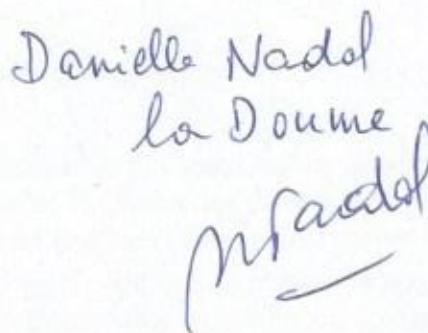 Danielle Nadal
la Doume